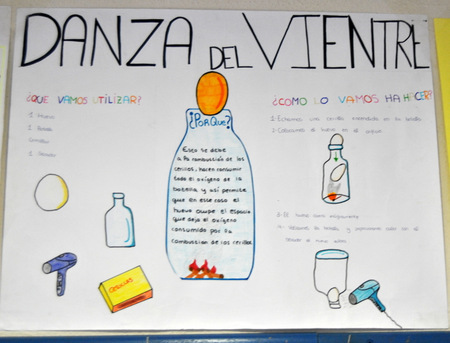 DANZA DEL VIENTRE
¿QUE VAMOS UTILIZAR?
1 Huevo
1 Botella
Cerillas
1 Secador
¿PORQUE?
Esto se debe
a la combustión de los
cerillos, hacen consumir
todo el oxígeno de la
botella y así permite
que en este caso el
huevo ocupe el espacio
que deja el oxígeno
consumido por la
combustion de las cerillas
CERILLAS
¿COMO LO VAMOS HA HACER?
1- Echamos una cerilla encendida en la botella
2- Colocamos el huevo en el orificio
3- El huevo